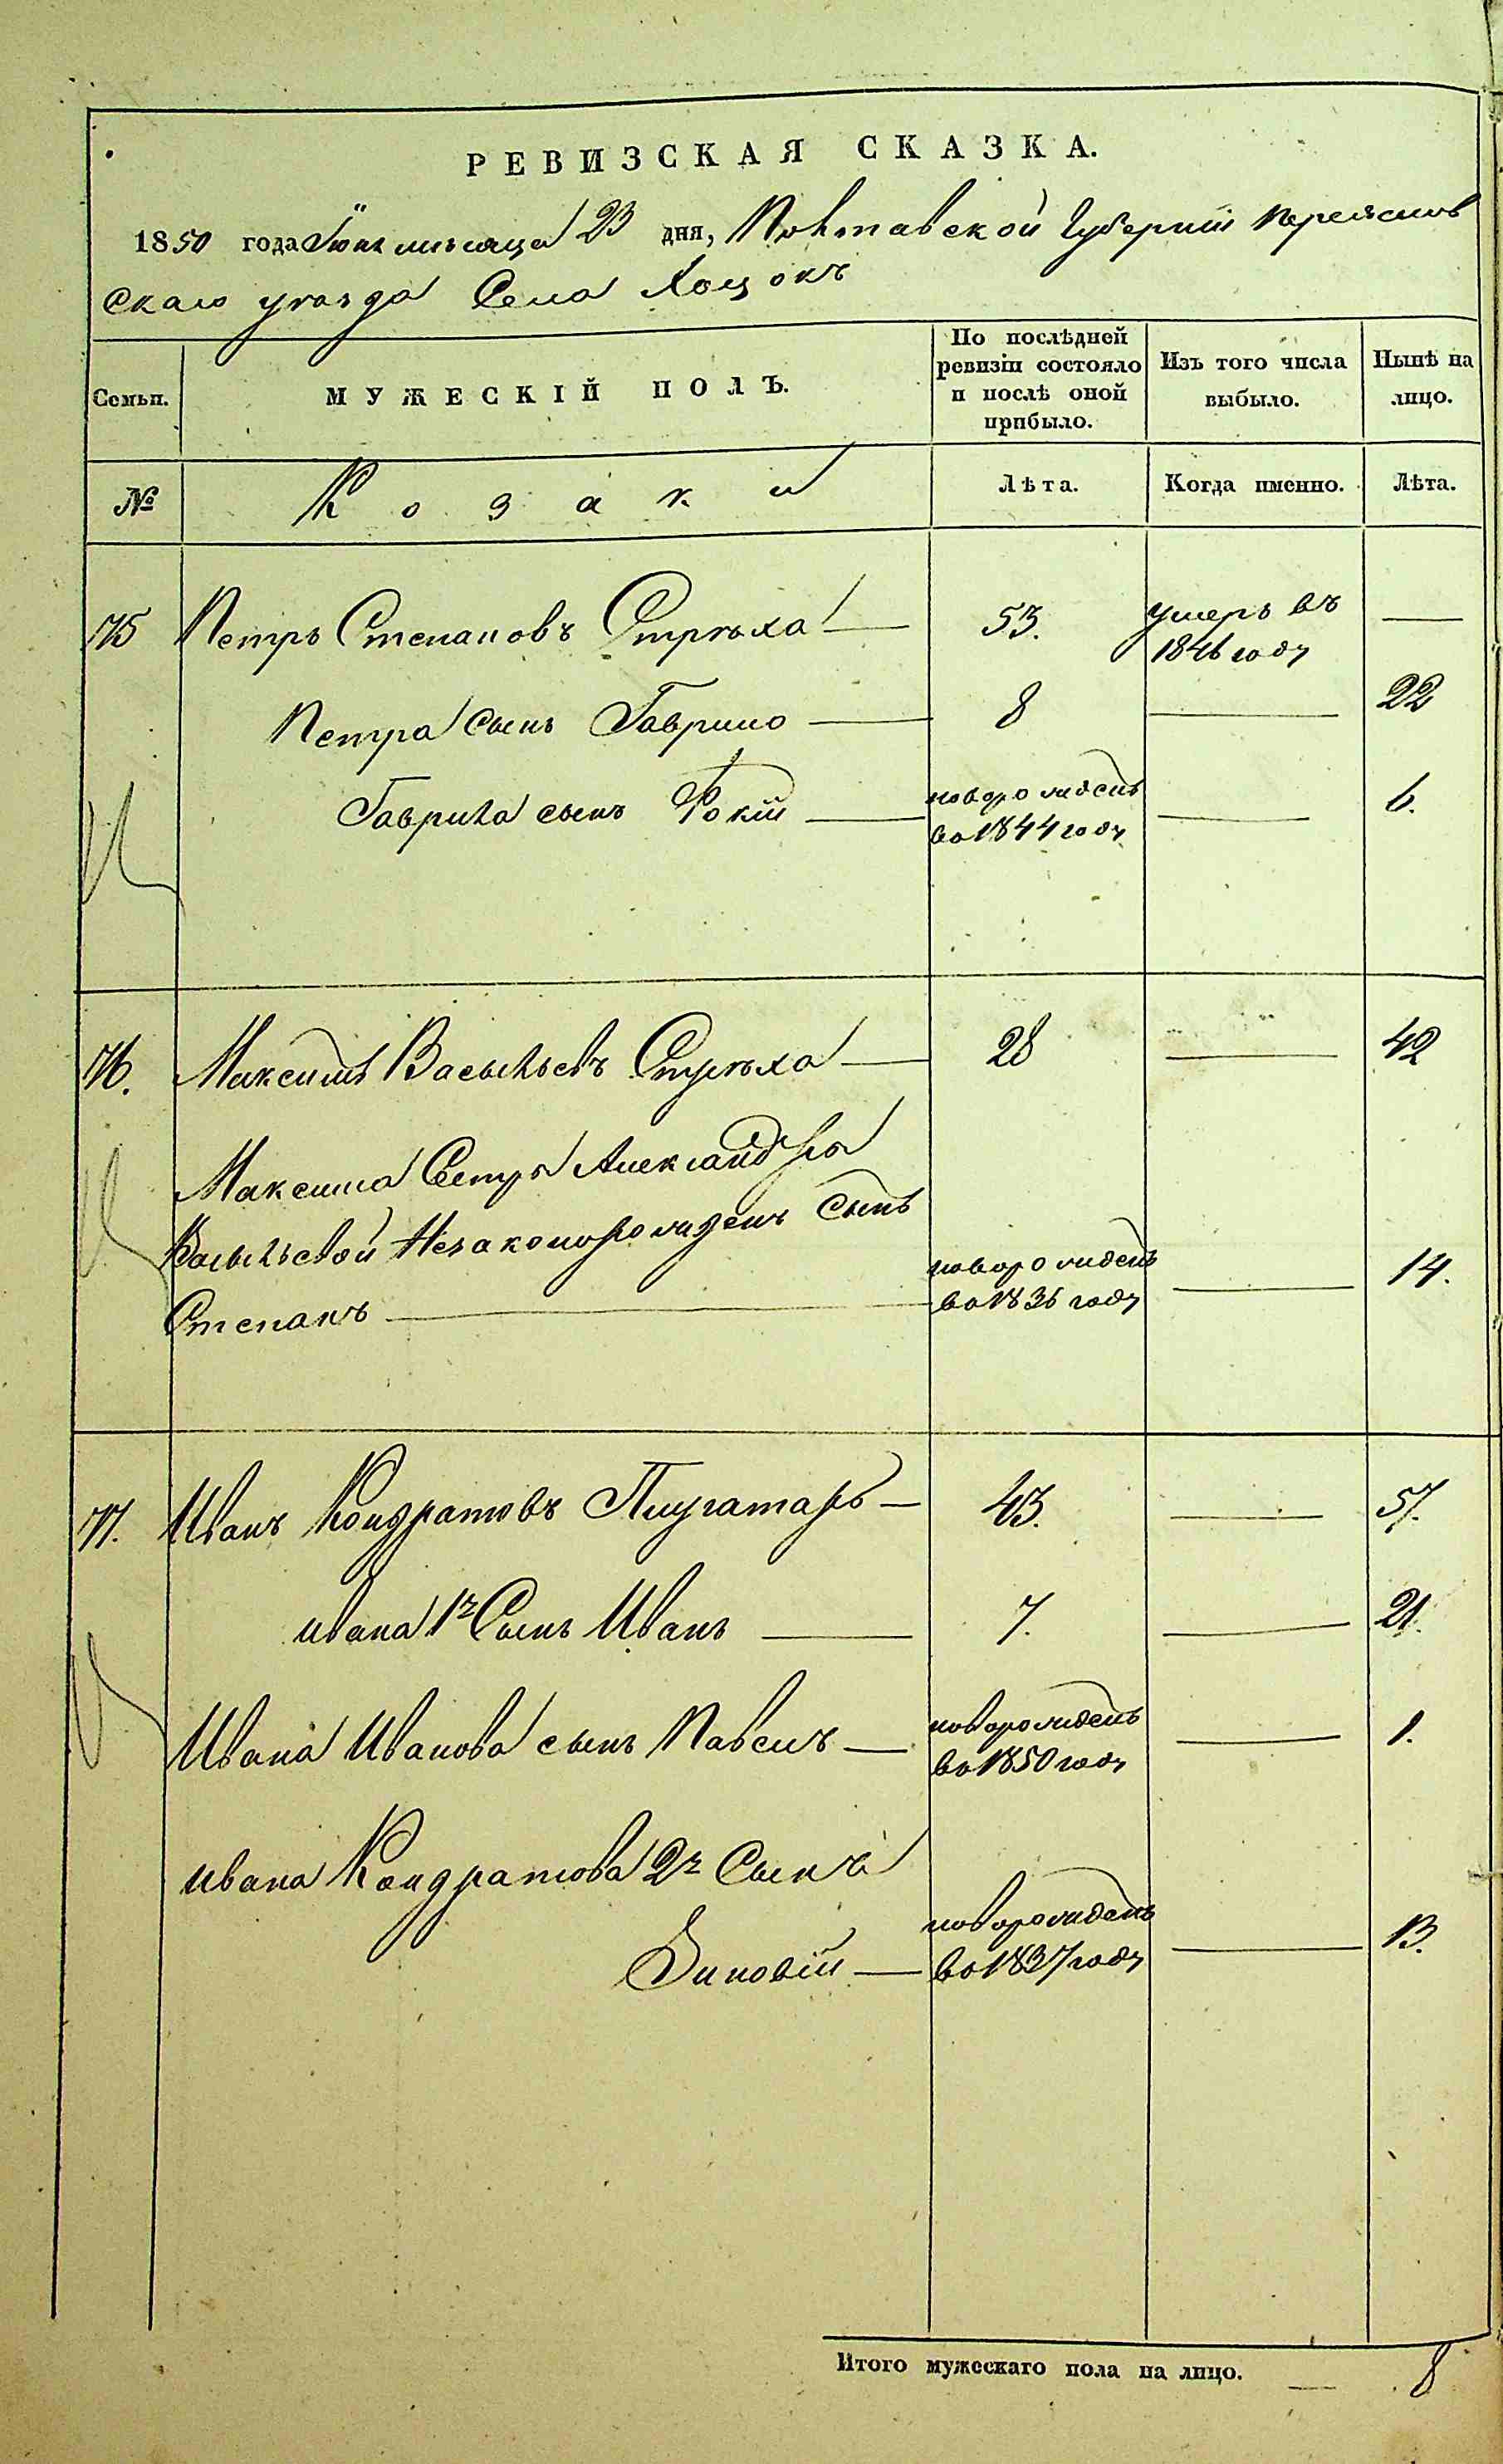 РЕВИЗСКАЯ СКАЗКА.
1850 года Іюня мѣсяца 23 дня, Полтавской Губерніи Переяслов
скаго уѣзда Села Хоцокъ
Семьи.
МУЖЕСКІЙ ПОЛЪ.
По послѣдней ревизіи состояло и послѣ оной прибыло.
Изъ того числа выбыло.
Нынѣ на лицо.
№
Козаки
Лѣта.
Когда именно.
Лѣта.
75 Петръ Степановъ Стрѣха — 53. умеръ въ 1846 году —
Петра сынъ Гаврило — 8 — 22
Гаврила сынъ Фокій — новорожденъ во 1844 году — 6.
76. Максимъ Васильевъ Стрѣха — 28 — 42
Максима Сестры Александры
Васильевой Незаконорожденъ Сынъ
Степанъ — новорожденъ во 1836 году — 14.
77. Иванъ Кондратовъ Плугатарь — 43. — 57.
Ивана 1й Сынъ Иванъ — 7. — 21.
Ивана Иванова сынъ Павелъ — новорожденъ во 1850 году — 1.
Ивана Кондратова 2й Сынъ
Зиновій — новорожденъ во 1837 году — 13.
Итого мужескаго пола на лицо. — 8